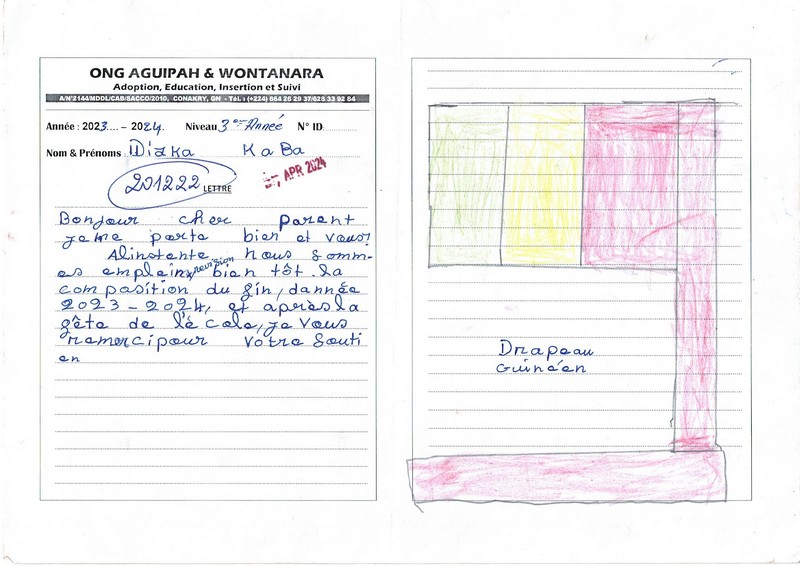 ONG AGUIPAH & WONTANARA
Adoption, Education, Insertion et Suivi
CONAKRY, GN - Tél.
Année : 2023.... - 2024. Niveau 3ème Année N° ID.
Nom & Prénoms : Diaka KaBa
201222 LETTRE
APR 2024
Bonjour cher parent
jeme porte bien et vous?
Alinstante nous somm-
es emplein, revision bien tôt. la
composition du fin, dannée
2023-2024, et après la
fête de l'école, je vous
remercipour votre Souti
en
Drapeau
Guinéen